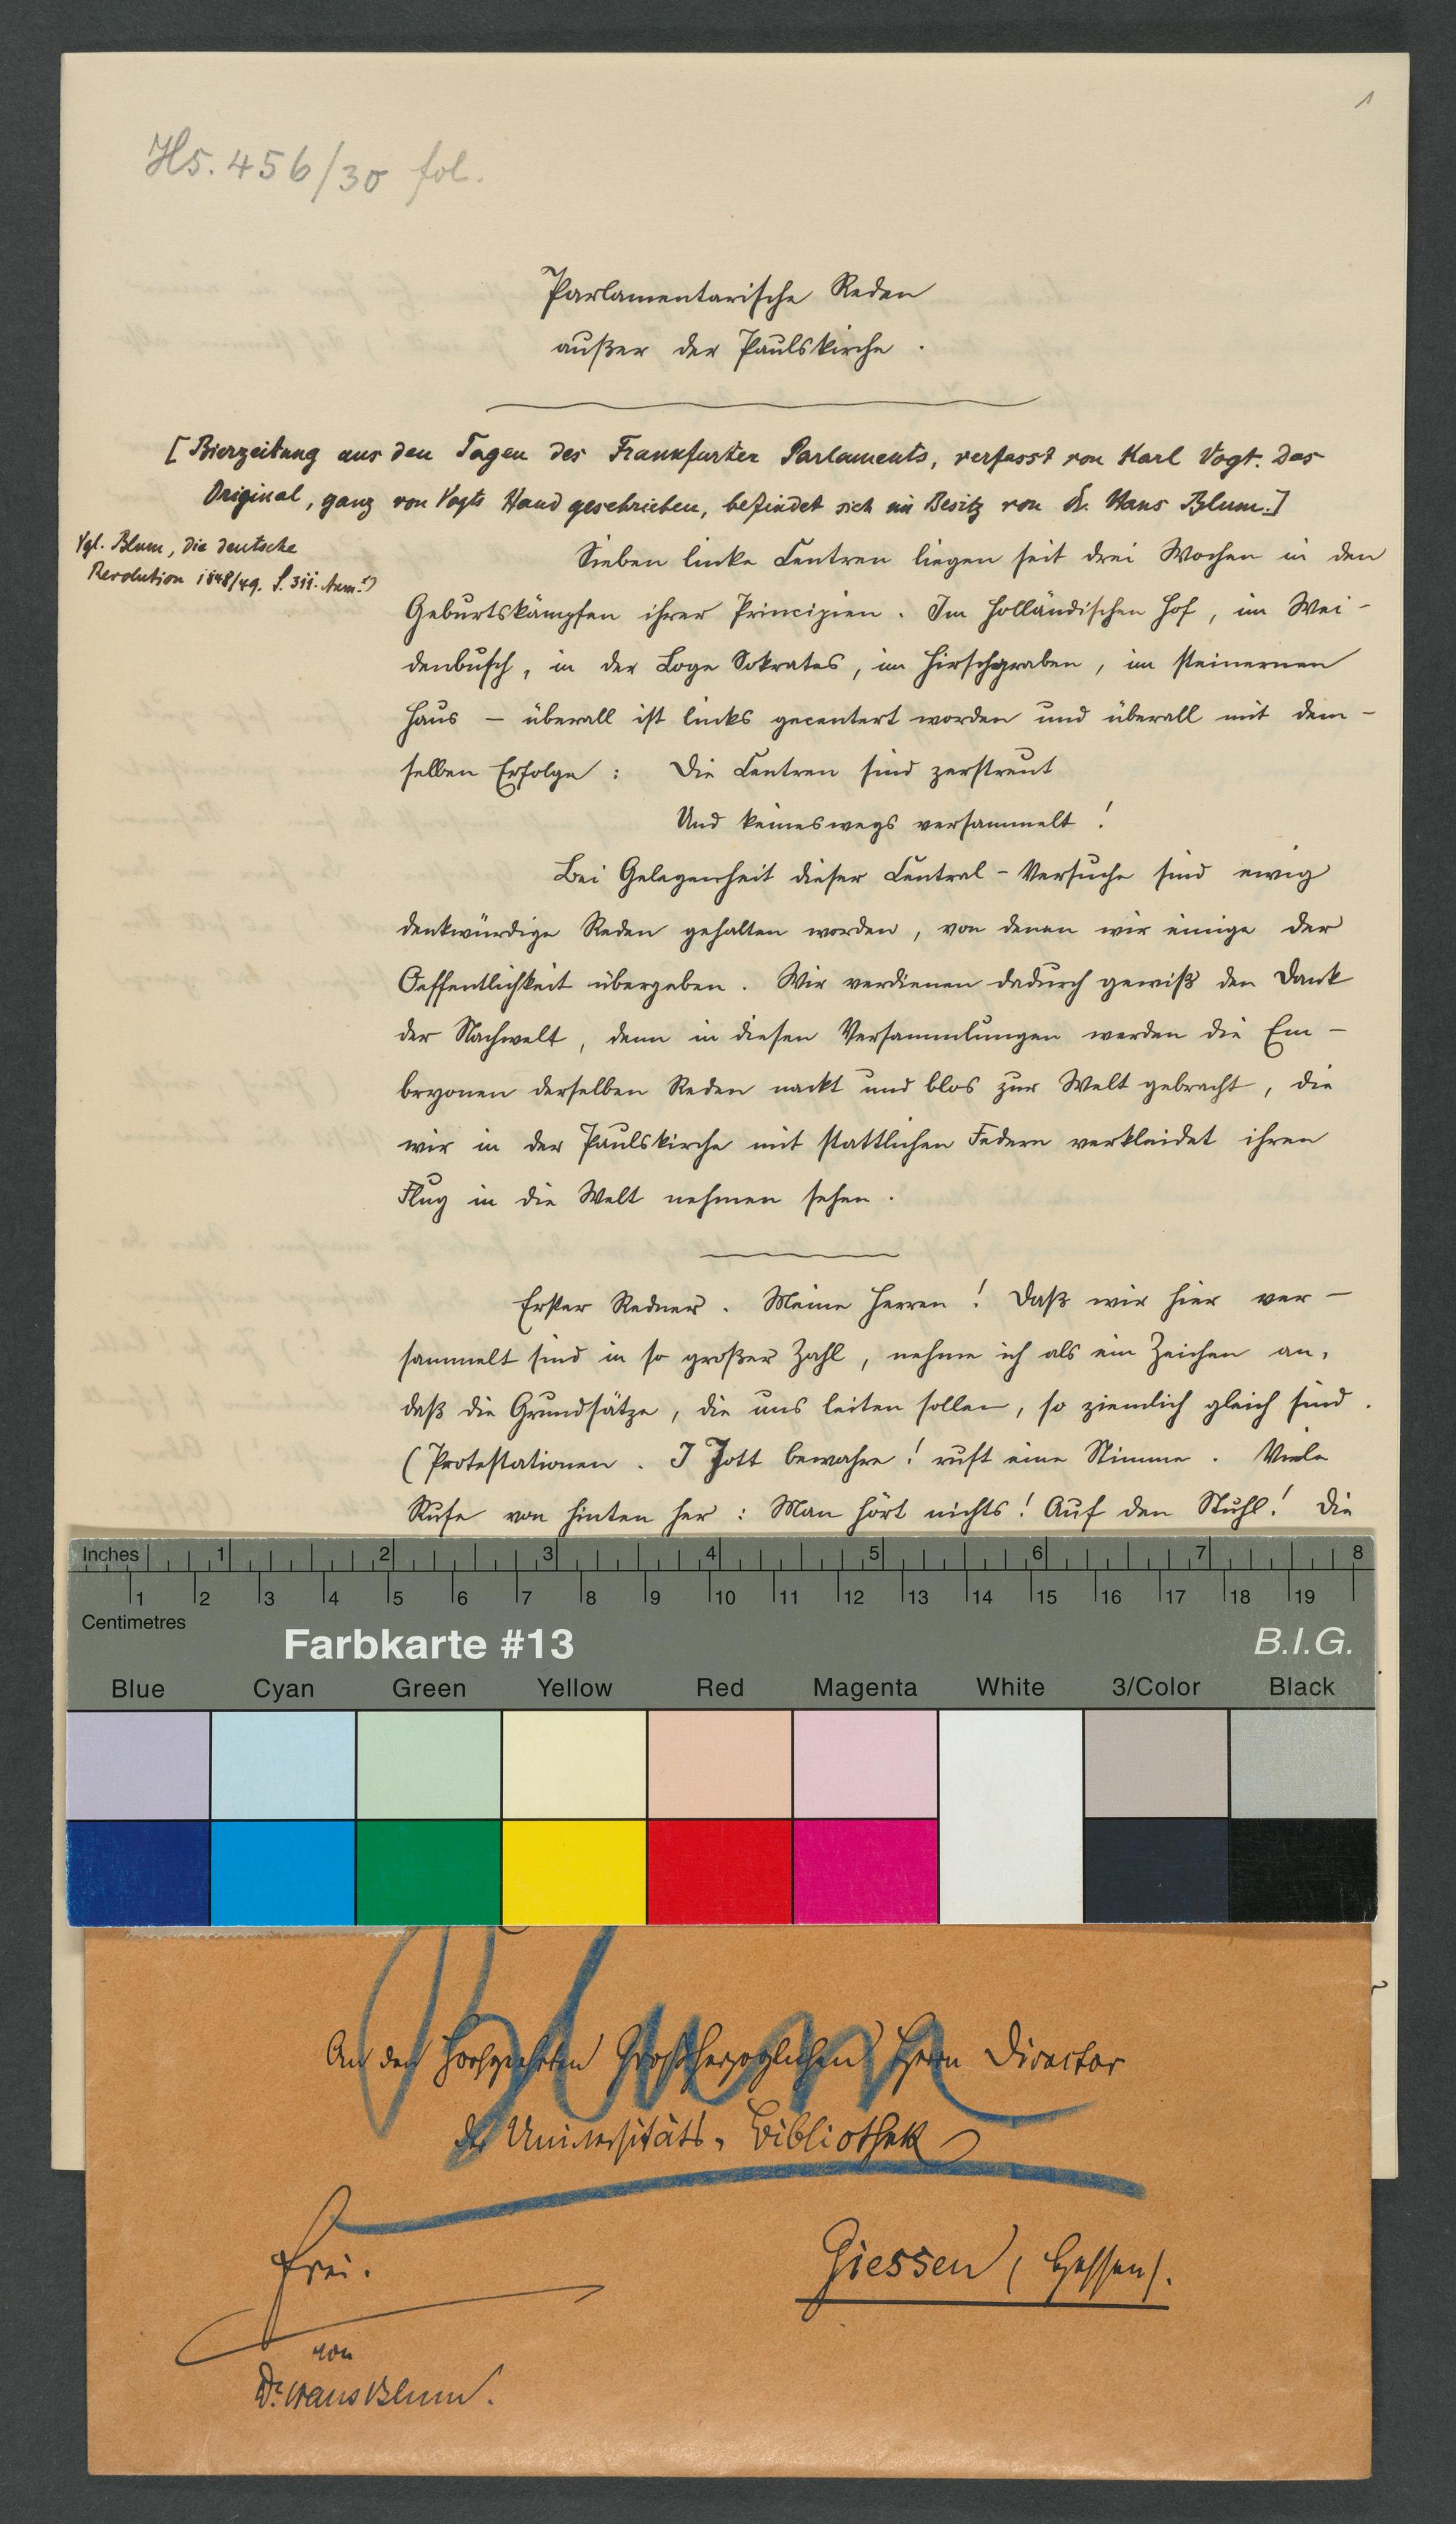 1
Hs. 456/30 fol.
Parlamentarische Reden
außer der Paulskirche.
[Bierzeitung aus den Tagen des Frankfurter Parlaments, verfasst von Karl Vogt. Das
Original, ganz von Vogts Hand geschrieben, befindet sich im Besitz von Dr. Hans Blum.]
Vgl. Blum, die deutsche
Revolution 1848/49. S. 311. Anm. 1)
Sieben linke Centren liegen seit drei Wochen in den
Geburtskämpfen ihrer Principien. Im Holländischen Hof, im Wei-
denbusch, in der Loge Sokrates, im Hirschgraben, im steinernen
Haus – überall ist links gecentert worden und überall mit dem-
selben Erfolge: Die Centren sind zerstreut
Und keineswegs versammelt!
Bei Gelegenheit dieser Central-Versuche sind ewig
denkwürdige Reden gehalten worden, von denen wir einige der
Oeffentlichkeit übergeben. Wir verdienen dadurch gewiß den Dank
der Nachwelt, denn in diesen Versammlungen werden die Em-
bryonen derselben Reden nackt und blos zur Welt gebracht, die
wir in der Paulskirche mit stattlichen Federn verkleidet ihren
Flug in die Welt nehmen sehen.
Erster Redner. Meine Herren! Daß wir hier ver-
sammelt sind in so großer Zahl, nehme ich als ein Zeichen an,
daß die Grundsätze, die uns leiten sollen, so ziemlich gleich sind.
(Protestationen. I Jott bewahre! ruft eine Stimme. Viele
Rufe von hinten her: Man hört nichts! Auf den Stuhl! Die
Inches 1 2 3 4 5 6 7 8
1 2 3 4 5 6 7 8 9 10 11 12 13 14 15 16 17 18 19
Centimetres
Farbkarte #13 B.I.G.
Blue Cyan Green Yellow Red Magenta White 3/Color Black
Blum
An den Hochgeehrten Großherzoglichen Herrn Director
der Universitäts-Bibliothek
Frei.
Giessen (Hessen).
von
Dr. Hans Blum.